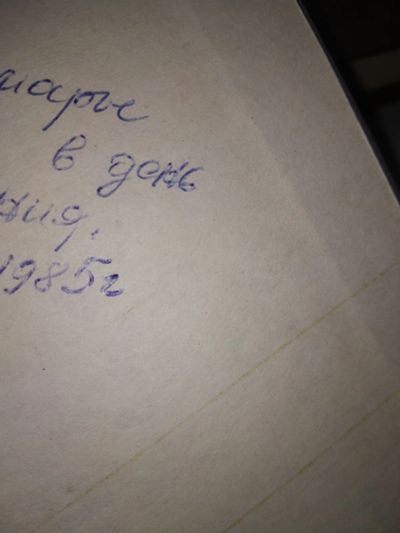 марье
в день
ния.
1985г